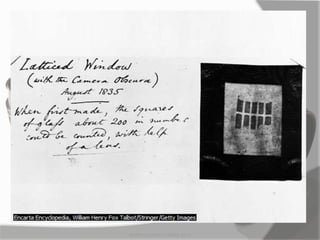 Latticed Window
(with the Camera Obscura)
August 1835
When first made, the squares
of glass about 200 in number
could be counted, with help
of a lens.
Encarta Encyclopedia, William Henry Fox Talbot/Stringer/Getty Images